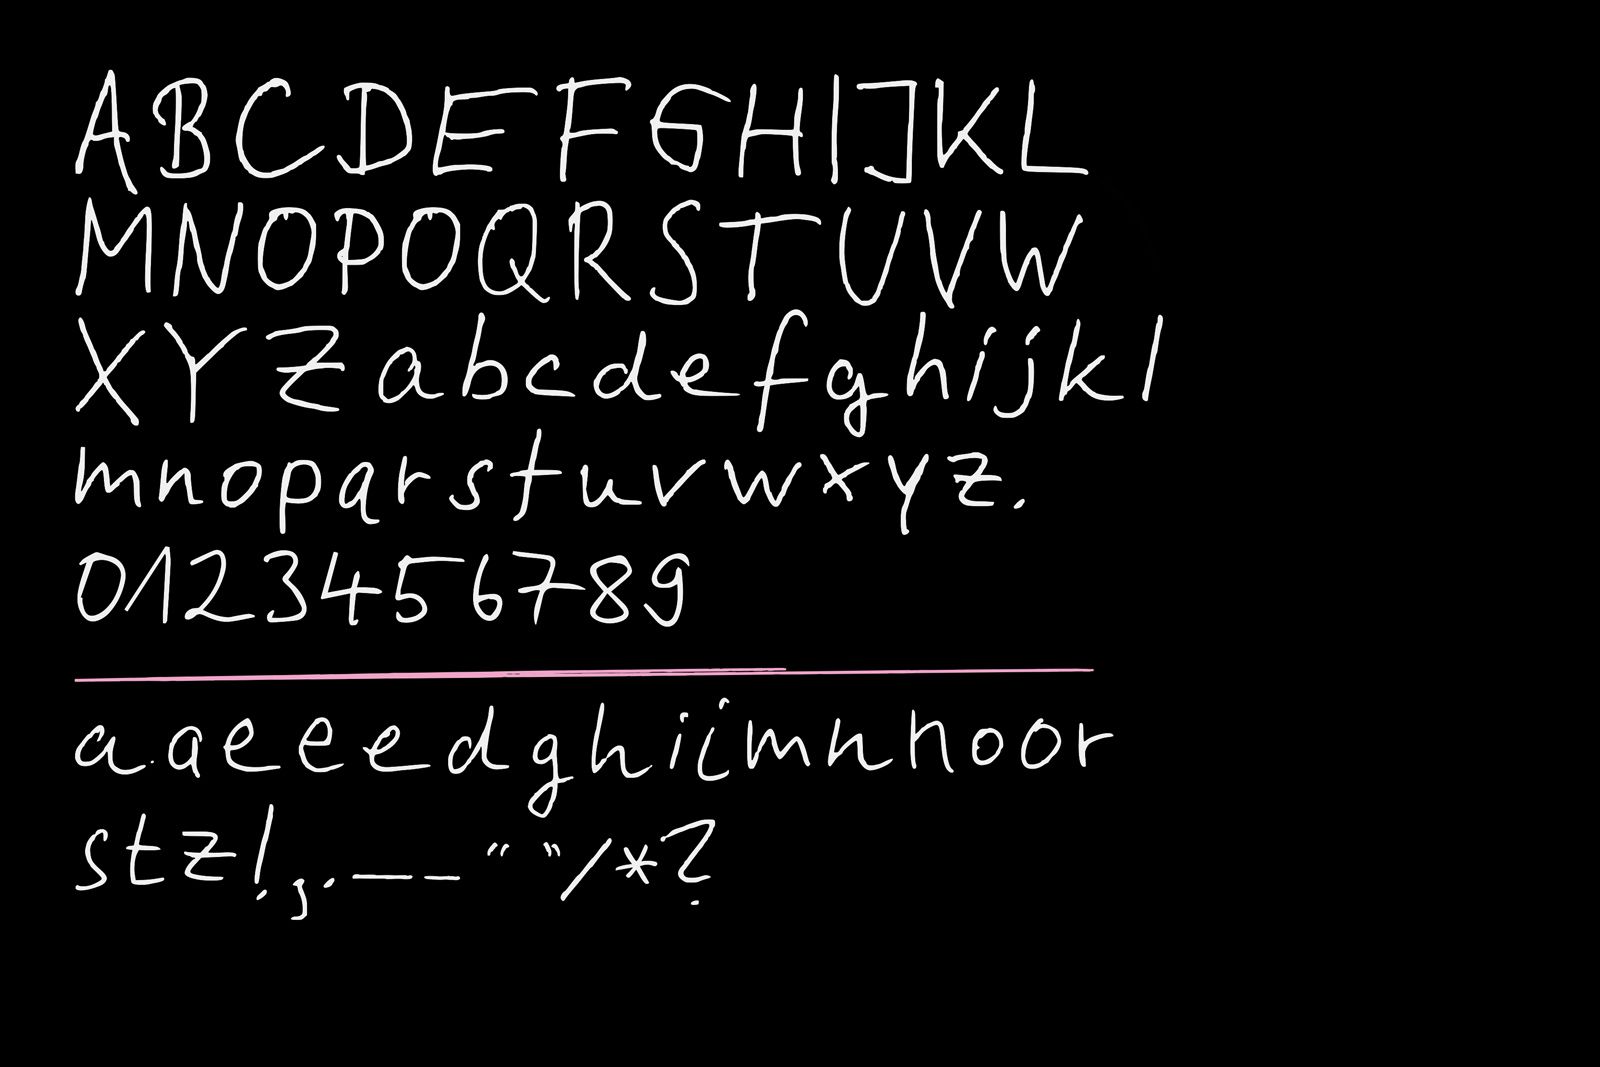 ABCDEFGHIJKL
MNOPOQRSTUVW
XYZabcdefghijkl
mnopqrstuvwxyz.
0123456789
aaeeedghiimnnoor
stz!,.——“ ”/*?